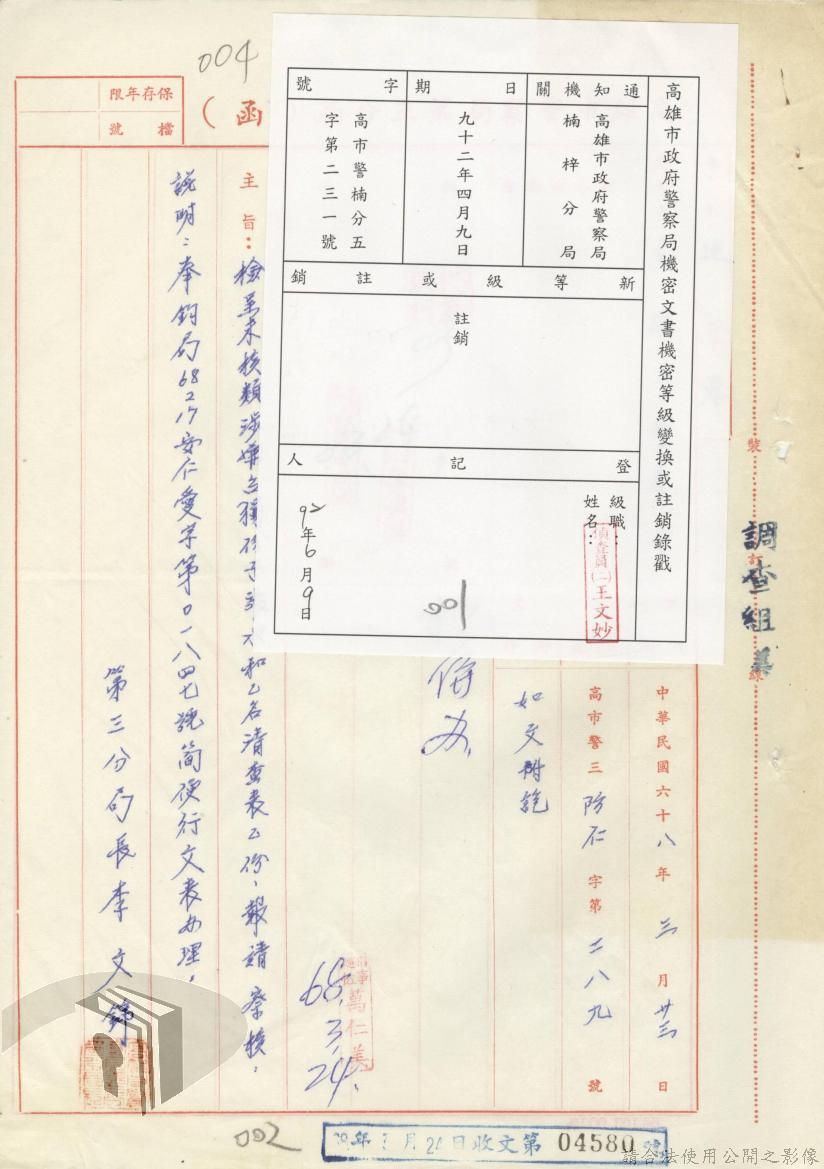 004
保存年限
檔號
（函
高雄市政府警察局機密文書機密等級變換或註銷錄戳
通知機關
高雄市政府警察局
楠梓分局
日期
九十二年四月九日
字號
高市警楠分五
字第二三一號
新等級或註銷
註銷
登記人
級職：
姓名：
偵查員(二)王文妙
92年6月9日
001
裝
訂
線
調查組
中華民國六十八年三月廿三日
高市警三防仁字第二八九號
如文
萬仁美
68.3.24.
主旨：檢呈未核類涉嫌
和乙名清查表乙份，報請
說明：奉鈞局68217安仁愛字第0一八四七號簡便行文表辦理，
第三分局長李文錦
002
月24日收文第04580號
請合法使用公開之影像